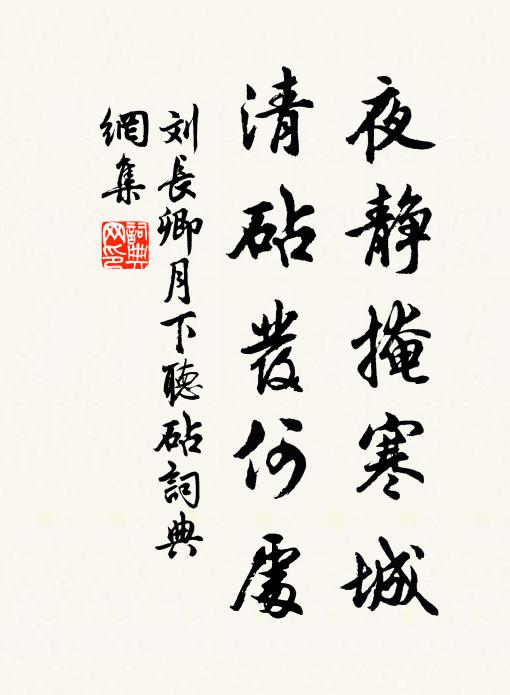 夜靜掩寒城
清砧發何處
刘長卿月下聽砧詞典
網集
詞典
网印